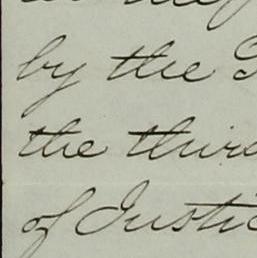 by the
the third
of Justice